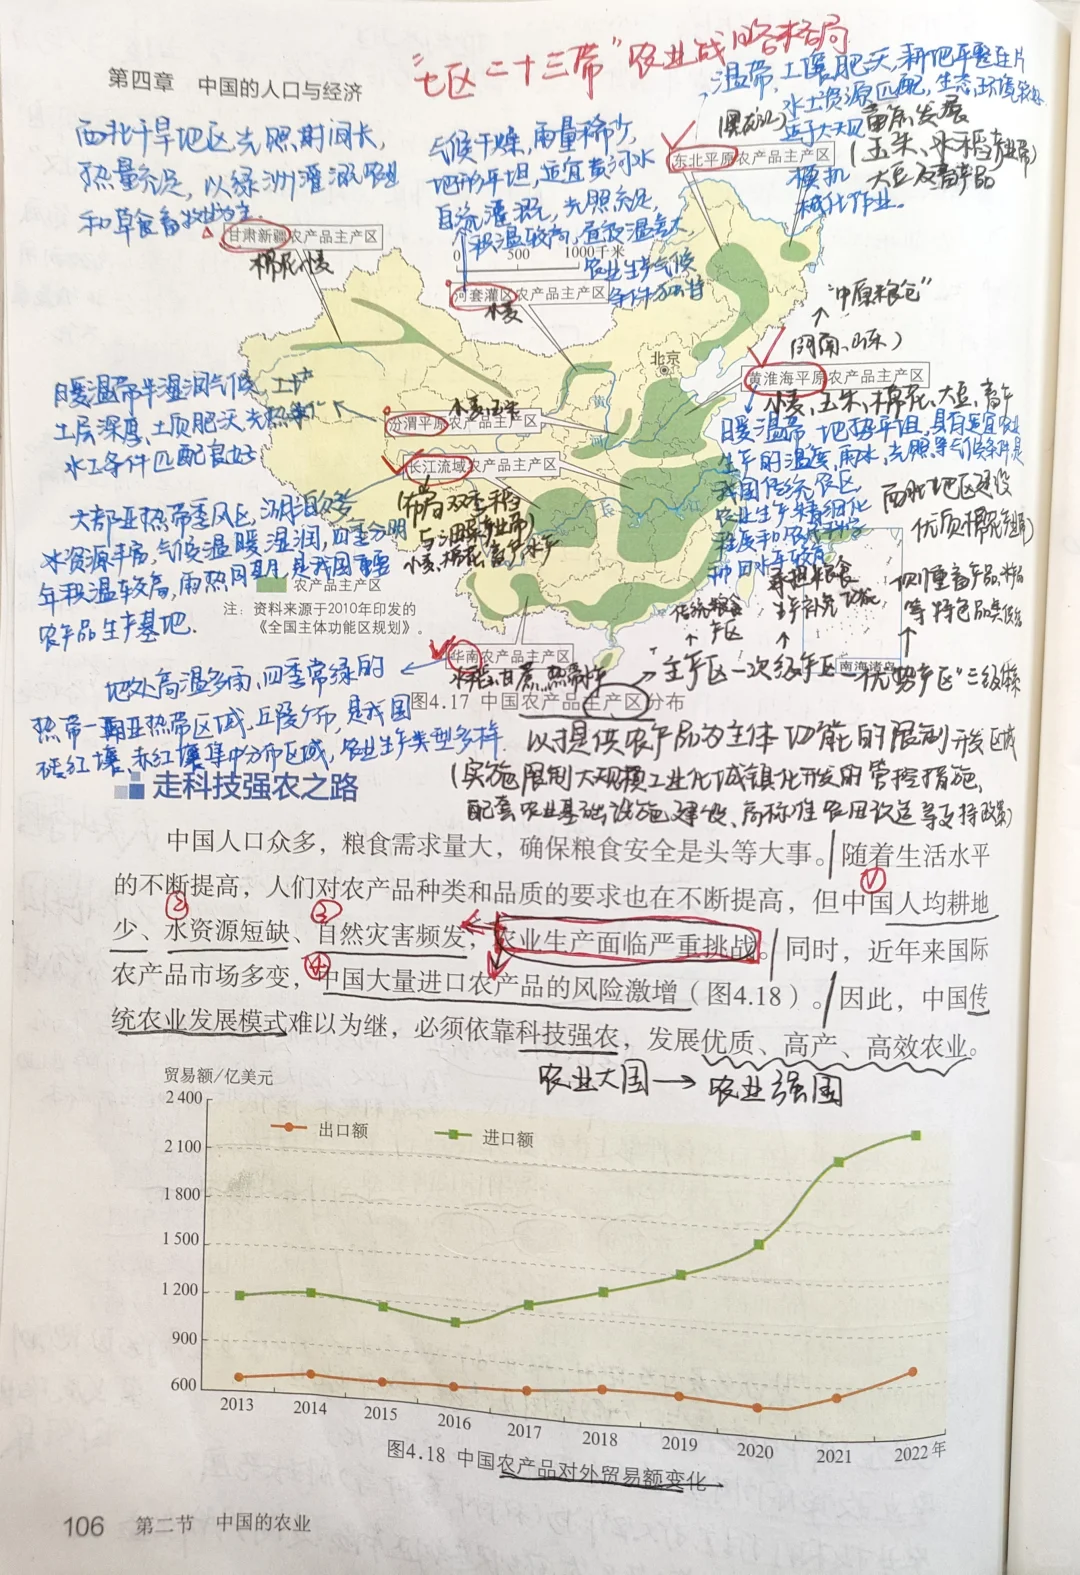 "七区二十三带"农业战略格局
第四章 中国的人口与经济
温带,土壤肥沃,耕地平整连片
水土资源匹配,生态环境较好
适于大
规模机
械化作业。
畜牧发展
(玉米、水稻产业带)
大豆及畜产品
西北干旱地区光照时间长,
热量充足,以绿洲灌溉农业
和草食畜牧业为主.
气候干燥,雨量稀少,
地形平坦,适宜黄河水
自流灌溉,光照充足,
积温较高,昼夜温差大
农业生产气候
东北平原农产品主产区
甘肃新疆农产品主产区
棉花小麦
0 500 1000千米
河套灌区农产品主产区
小麦
"中原粮仓"
(河南、山东)
北京
黄淮海平原农产品主产区
小麦,玉米、棉花、大豆,畜牧
暖温带 地势平坦,具有适宜农业
生产的温度,雨水,光照等气候条件是
我国传统农区,
农业生产精细化
暖温带半湿润气候
土层深厚、土质肥沃光热
水土条件匹配良好
汾渭平原农产品主产区
小麦玉米
黄
河
长江流域农产品主产区
(布局双季稻
与油菜产业带)
小麦,棉花,畜产水产
长
江
西北地区建设
优质棉花产业带
大部亚热带季风区,湖泊众多
水资源丰富,气候温暖湿润,四季分明
年积温较高,雨热同期,是我国重要
农产品生产基地.
农产品主产区
注:资料来源于2010年印发的
《全国主体功能区规划》。
传统粮食
产区
华南农产品主产区
水稻,甘蔗,热带
主产区—次级产区—优势产区"三级
南海诸岛
地处高温多雨,四季常绿的
热带—南亚热带区域,丘陵广布,是我国
砖红壤、赤红壤集中分布区域,农业生产类型多样.
图4.17 中国农产品主产区分布
以提供农产品为主体功能的限制开发区域
(实施限制大规模工业化城镇化开发的管控措施,
配套农业基础设施建设、高标准农田改造等支持政策)
走科技强农之路
中国人口众多,粮食需求量大,确保粮食安全是头等大事。随着生活水平
的不断提高,人们对农产品种类和品质的要求也在不断提高,但中国人均耕地
少、水资源短缺、自然灾害频发,农业生产面临严重挑战。同时,近年来国际
农产品市场多变,中国大量进口农产品的风险激增(图4.18)。因此,中国传
统农业发展模式难以为继,必须依靠科技强农,发展优质、高产、高效农业。
农业大国→农业强国
贸易额/亿美元
2 400
2 100
1 800
1 500
1 200
900
600
出口额 进口额
2013 2014 2015 2016 2017 2018 2019 2020 2021 2022年
图4.18 中国农产品对外贸易额变化
106 第二节 中国的农业